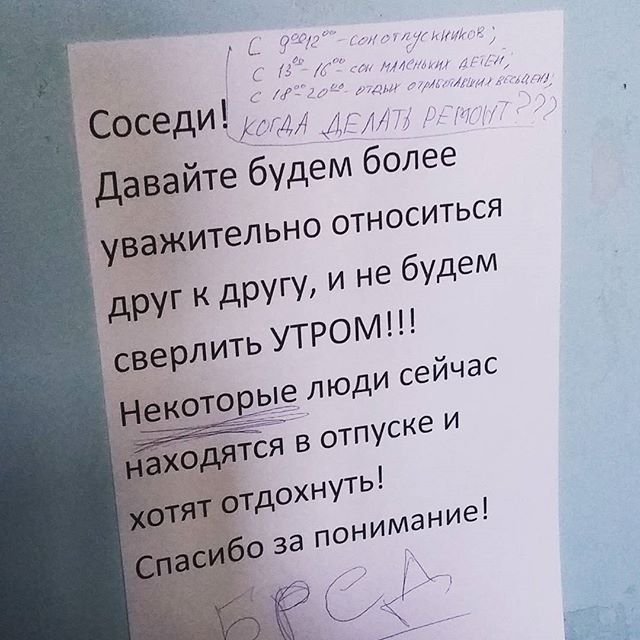 С 9⁰⁰-12⁰⁰ - сон отпускников;
С 13⁰⁰-16⁰⁰ - сон маленьких детей;
С 18⁰⁰-20⁰⁰ - отдых отработавших весь день;
КОГДА ДЕЛАТЬ РЕМОНТ???
Соседи!
Давайте будем более
уважительно относиться
друг к другу, и не будем
сверлить УТРОМ!!!
Некоторые люди сейчас
находятся в отпуске и
хотят отдохнуть!
Спасибо за понимание!
БРЕД